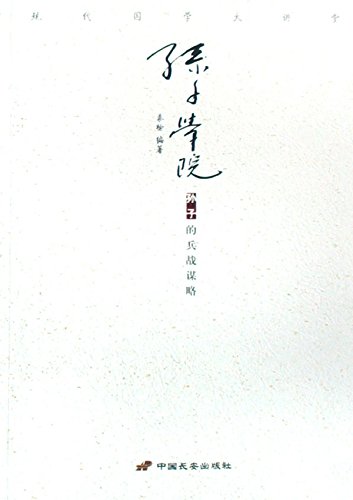 现代国学大讲堂
孫子学院
秦榆 编著
孙子的兵战谋略
中国长安出版社